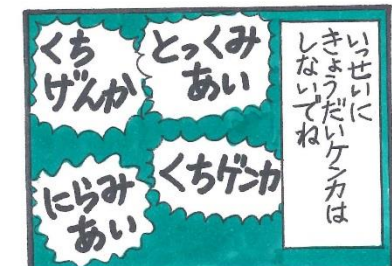 いっせいに
きょうだいケンカは
しないでね
とっくみ
あい
くち
げんか
くちゲンカ
にらみ
あい